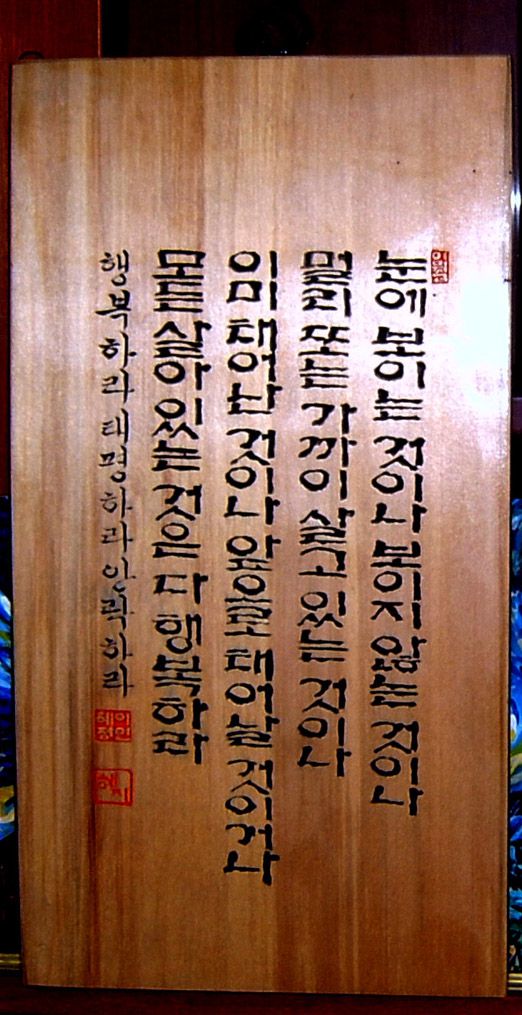 눈에 보이는 것이나 보이지 않는 것이나
멀리 또는 가까이 살고 있는 것이나
이미 태어난 것이나 앞으로 태어날 것이거나
모든 살아 있는 것은 다 행복하라
행복하라 태평하라 안락하라